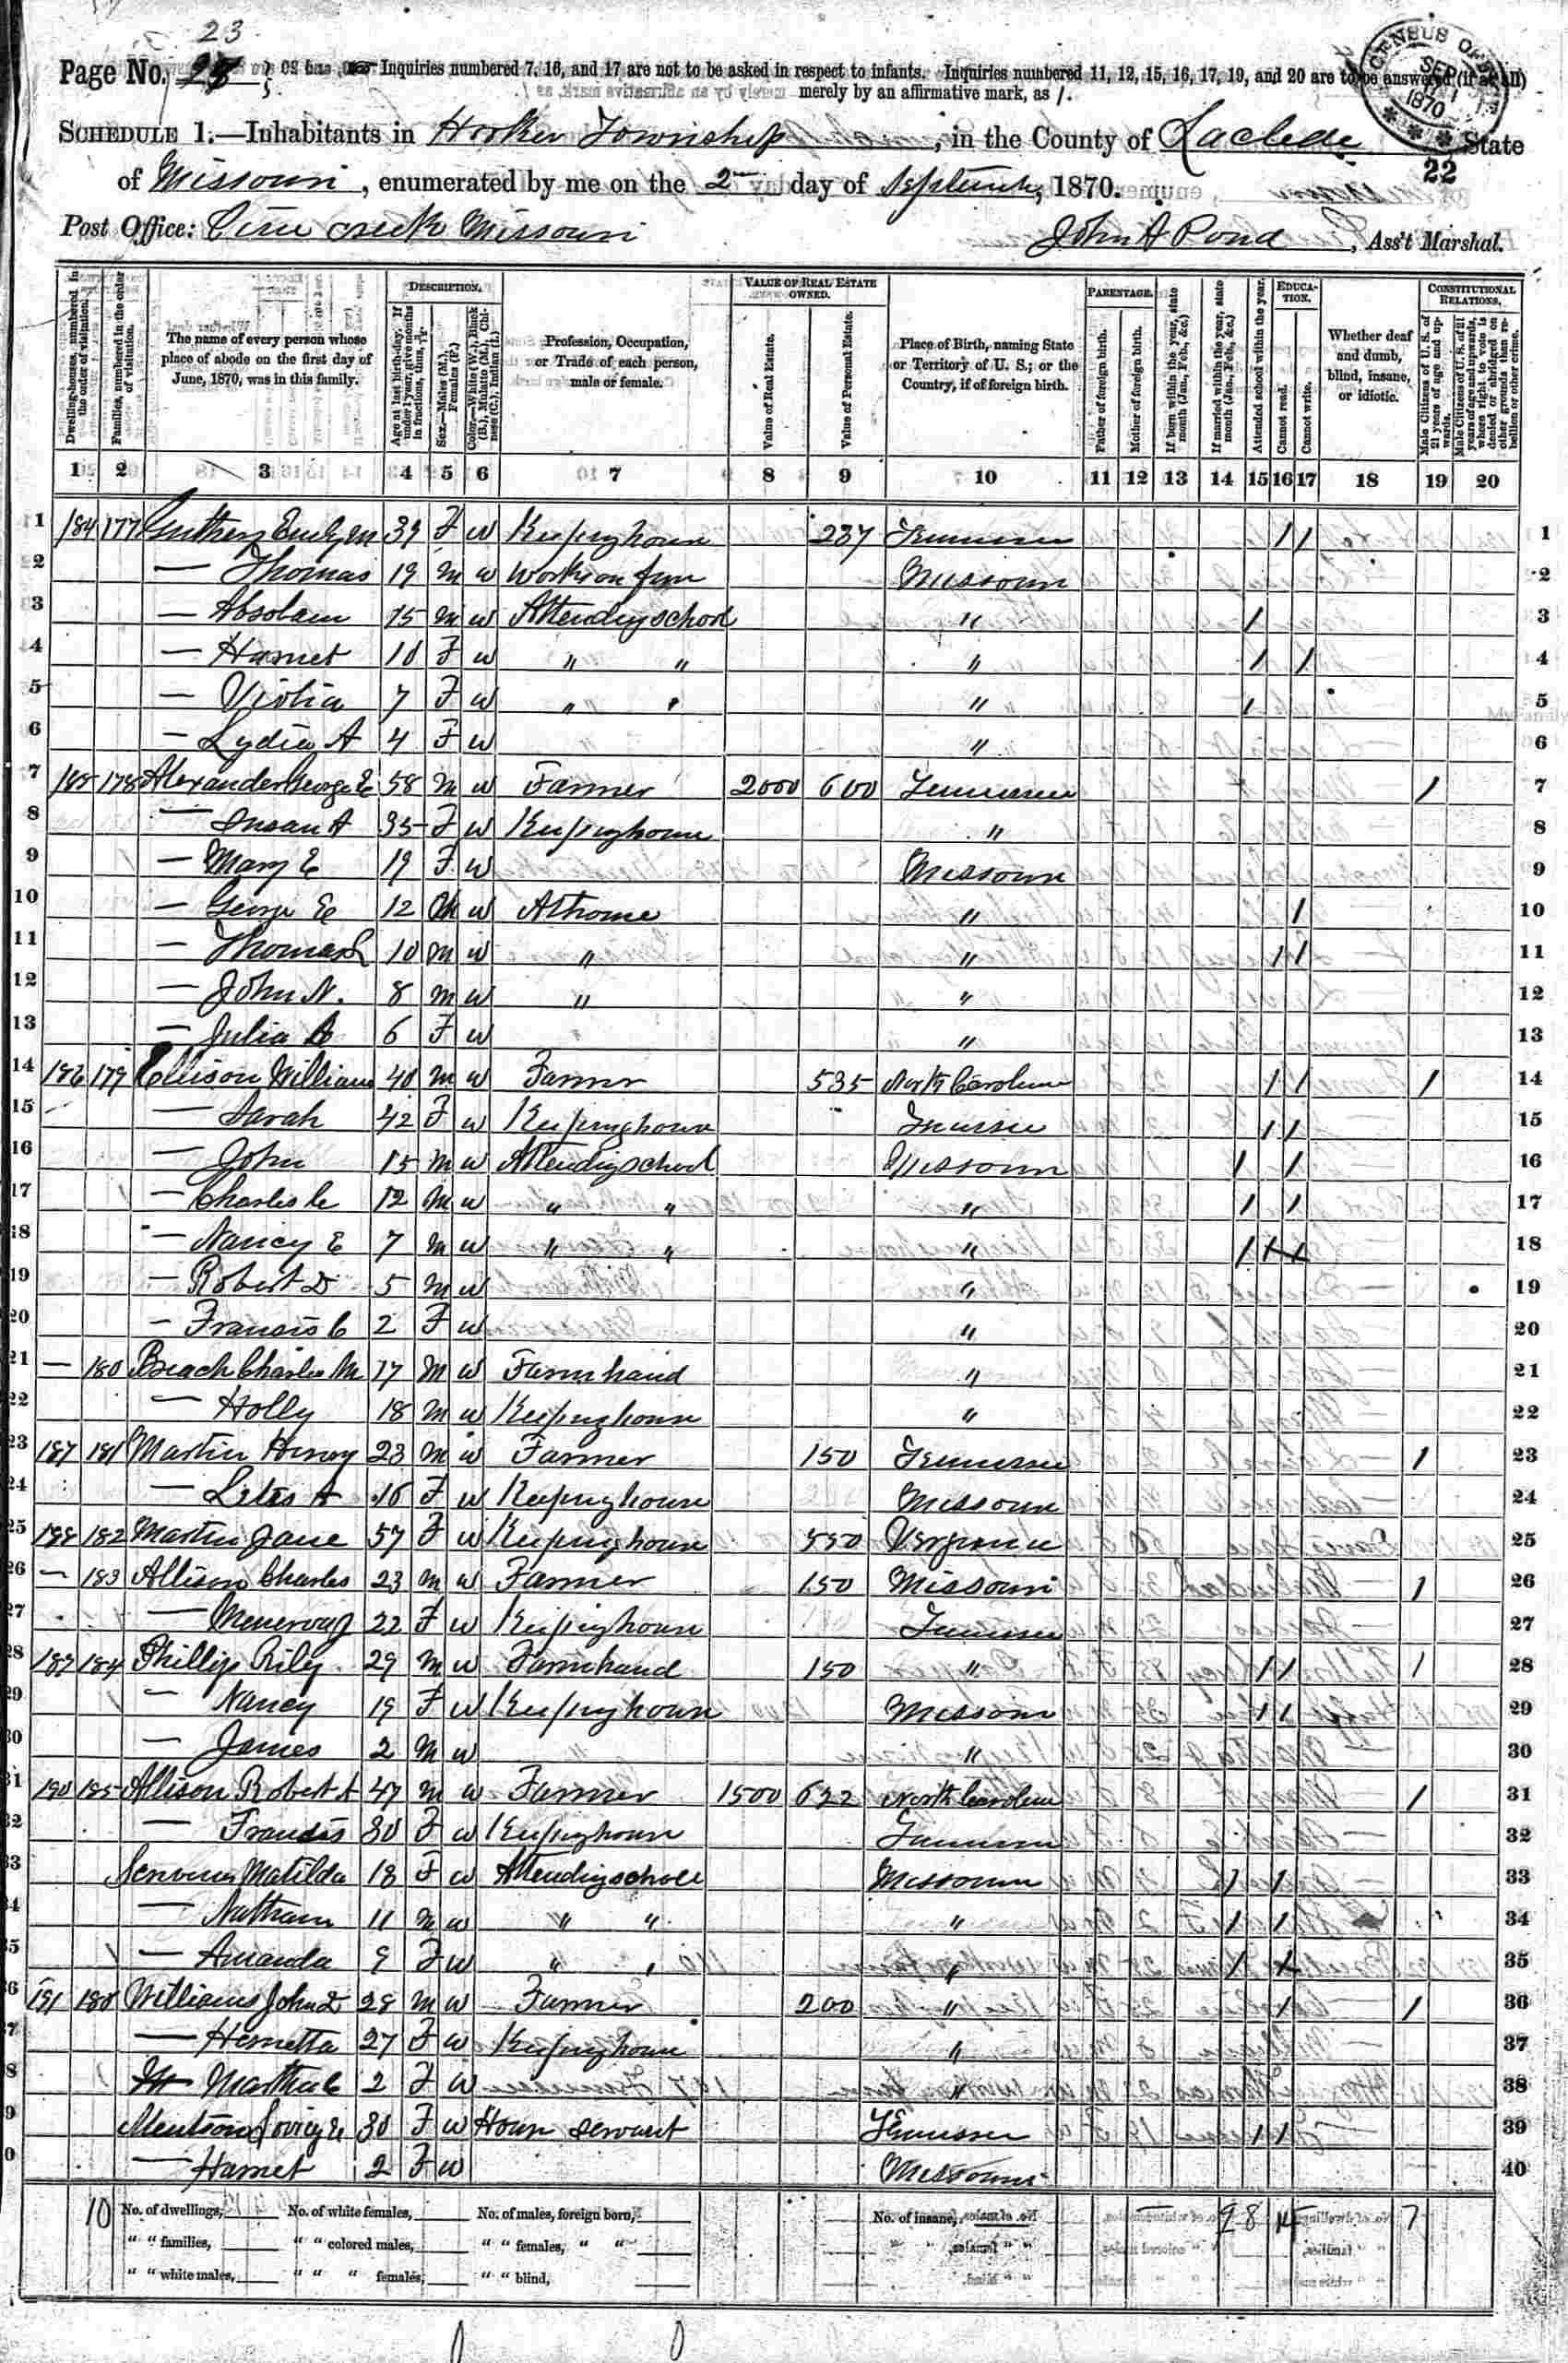 23
Page No. 23
Inquiries numbered 7, 16, and 17 are not to be asked in respect to infants. Inquiries numbered 11, 12, 15, 16, 17, 19, and 20 are to be answered (if at all)
merely by an affirmative mark, as /.
CENSUS
SEP
1870
SCHEDULE 1.—Inhabitants in Hooker Township, in the County of Laclede, State
22
of Missouri, enumerated by me on the 2nd day of September, 1870.
Post Office: creek Missouri
John A Pond, Ass't Marshal.
Dwelling-houses, numbered in the order of visitation.
Families, numbered in the order of visitation.
The name of every person whose place of abode on the first day of June, 1870, was in this family.
DESCRIPTION.
Age at last birth-day. If under 1 year, give months in fractions, thus,
Sex.—Males (M.), Females (F.)
Color.—White (W.), Black (B.), Mulatto (M.), Chinese (C.), Indian (I.)
Profession, Occupation, or Trade of each person, male or female.
VALUE OF REAL ESTATE OWNED.
Value of Real Estate.
Value of Personal Estate.
Place of Birth, naming State or Territory of U. S.; or the Country, if of foreign birth.
PARENTAGE.
Father of foreign birth.
Mother of foreign birth.
If born within the year, state month (Jan., Feb., &c.)
If married within the year, state month (Jan., Feb., &c.)
Attended school within the year.
EDUCATION.
Cannot read.
Cannot write.
Whether deaf and dumb, blind, insane, or idiotic.
CONSTITUTIONAL RELATIONS.
Male Citizens of U. S. of 21 years of age and upwards.
Male Citizens of U. S. of 21 years of age and upwards, whose right to vote is denied or abridged on other grounds than rebellion or other crime.
1 2 3 4 5 6 7 8 9 10 11 12 13 14 15 16 17 18 19 20
1 184 177 39 F W Keeping house 237 Tennessee / / 1
2 — Thomas 19 M W Works on farm Missouri 2
3 — Absolam 15 M W Attending school " / 3
4 — Harriet 10 F W " " " / / 4
5 — 7 F W " " " / 5
6 — Lydia A 4 F W " 6
7 185 178 Alexander George E 58 M W Farmer 2000 600 Tennessee / 7
8 — Susan A 35 F W Keeping house " 8
9 — Mary E 19 F W Missouri 9
10 — George E 12 M W At home " / 10
11 — Thomas L 10 M W " " / / 11
12 — John N. 8 M W " " 12
13 — Julia A 6 F W " 13
14 186 179 Ellison William 40 M W Farmer 535 North Carolina / / / 14
15 — Sarah 42 F W Keeping house Tennessee / / 15
16 — John 15 M W Attending school Missouri / / 16
17 — Charles C 12 M W " " " / / 17
18 — Nancy E 7 M W " " " / 18
19 — Robert D 5 M W " 19
20 — Francis C 2 F W " 20
21 — 180 Charles M 17 M W Farm hand " 21
22 — Holly 18 M W Keeping house " 22
23 187 181 Martin Henry 23 M W Farmer 150 Tennessee / 23
24 — A 16 F W Keeping house Missouri 24
25 188 182 Martin Jane 57 F W Keeping house 550 Virginia 25
26 — 183 Allison Charles 23 M W Farmer 150 Missouri / 26
27 — 22 F W Keeping house Tennessee 27
28 189 184 Phillips Riley 29 M W Farm hand 150 " / / / 28
29 — Nancy 19 F W Keeping house Missouri / / 29
30 — James 2 M W " 30
31 190 185 Allison Robert A 47 M W Farmer 1500 622 North Carolina / 31
32 — Francis 30 F W Keeping house Tennessee 32
33 Matilda 18 F W Attending school Missouri / / 33
34 — Nathan 11 M W " " " / / 34
35 — Amanda 9 F W " " " / 35
36 191 186 Williams John D 28 M W Farmer 200 " / / 36
37 — Henrietta 27 F W Keeping house " 37
38 Martha C 2 F W " 38
39 30 F W House servant Tennessee / / 39
40 — Harriet 2 F W Missouri 40
10 No. of dwellings, No. of white females, No. of males, foreign born, No. of insane, 28 14 7
" " families, " " colored males, " " females, " "
" " white males, " " " females, " " blind,